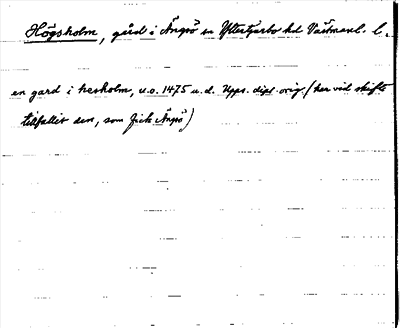 Högsholm, gård i Ängsö sn Yttertjurbo hd Västmanl. l.
en gard i hesholm, u.o. 1475 u.d. Upps. dipl. orig. (här vid skifte
tillfallit den, som fick Ängsö)